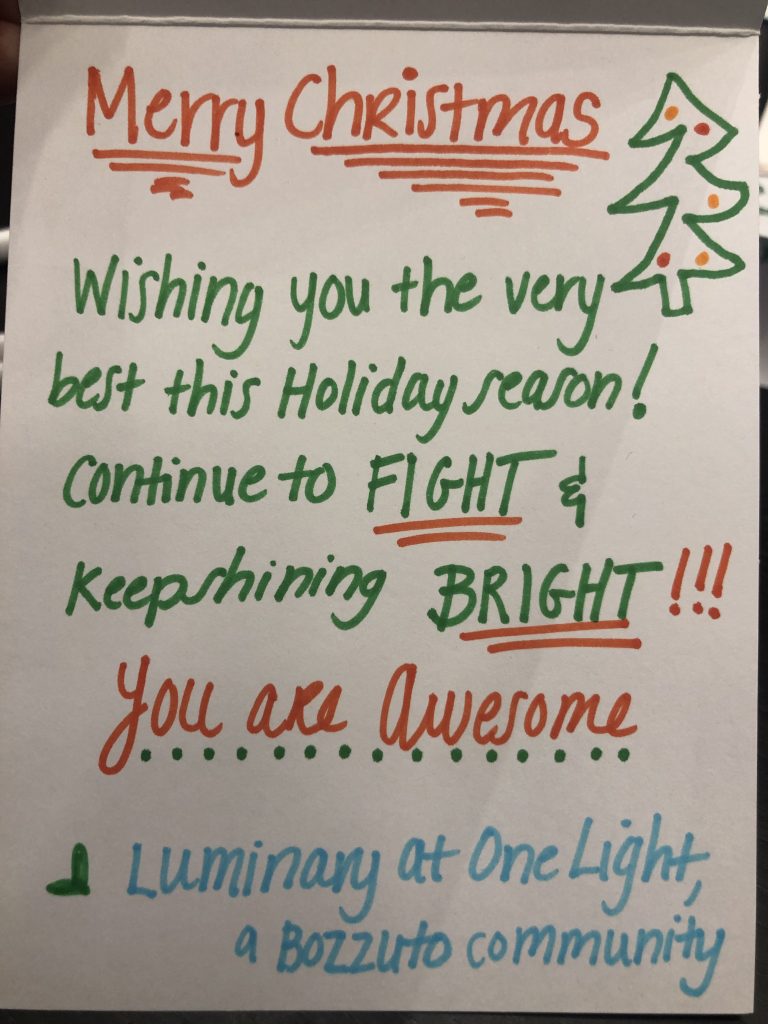 Merry Christmas
Wishing you the very
best this Holiday season!
Continue to FIGHT &
Keep shining BRIGHT!!!
You are Awesome
Luminary at One Light,
a Bozzuto community